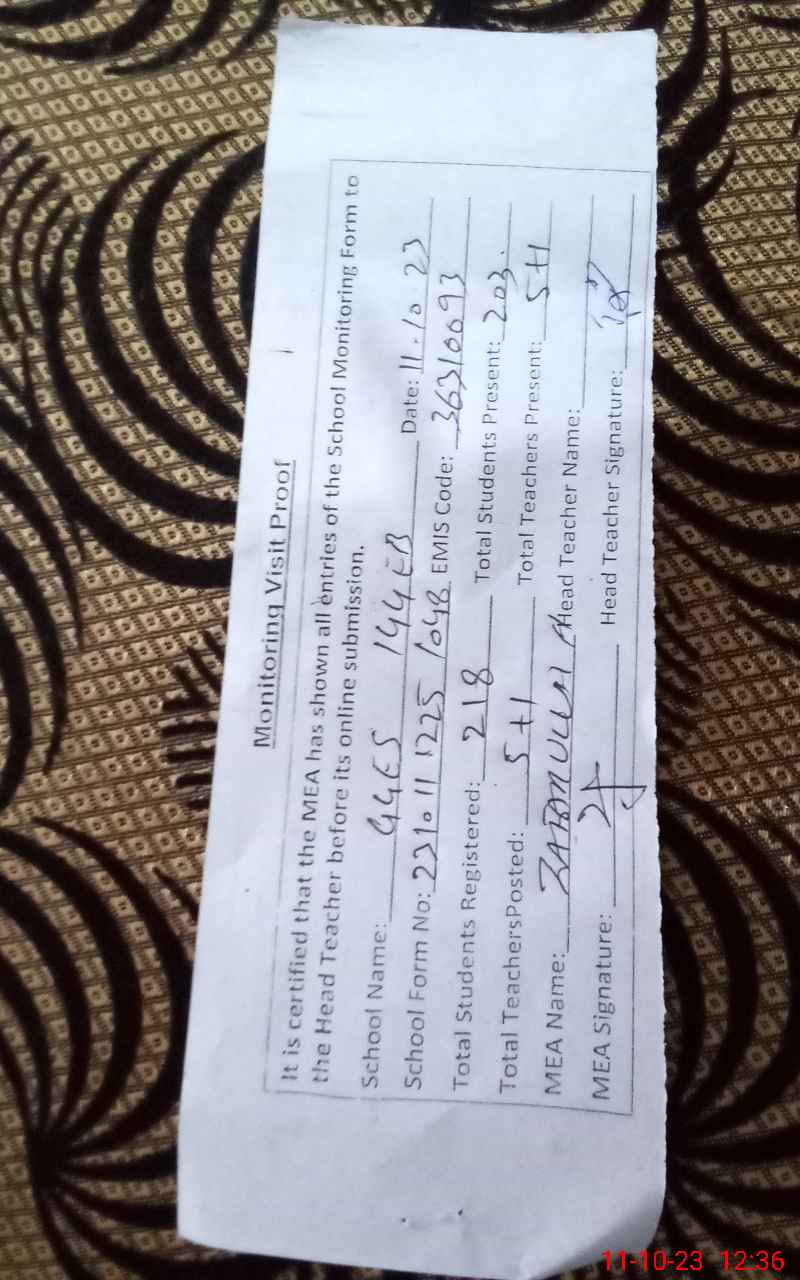 Monitoring Visit Proof
It is certified that the MEA has shown all entries of the School Monitoring Form to
the Head Teacher before its online submission.
School Name: GGES 144EB Date: 11.10.23
School Form No: 2310111225 1048 EMIS Code: 36310093
Total Students Registered: 218 Total Students Present: 203.
Total TeachersPosted: 5+1 Total Teachers Present: 5+1
MEA Name: ZAFARULLAH Head Teacher Name:
MEA Signature: Head Teacher Signature:
11-10-23 12:36